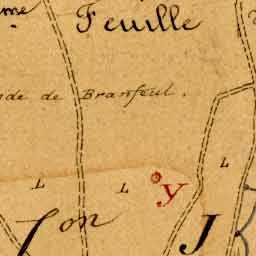 me Feuille
de de Branfeul.
L
L L y
Jon J